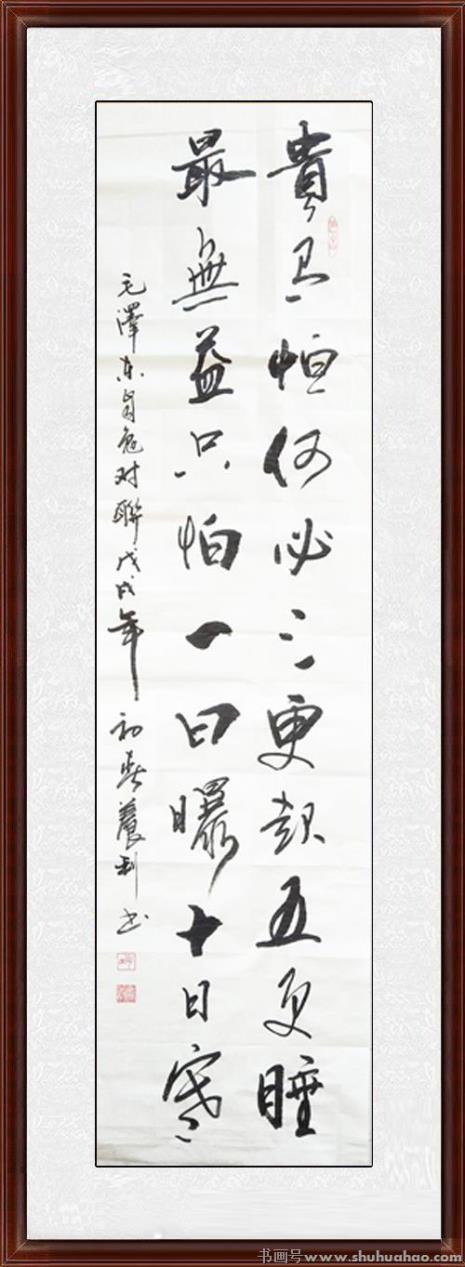 貴有恒何必三更起五更睡
最無益只怕一日曬十日寒
毛澤东自勉对聯戊戌年初春书
书画号www.shuhuahao.com